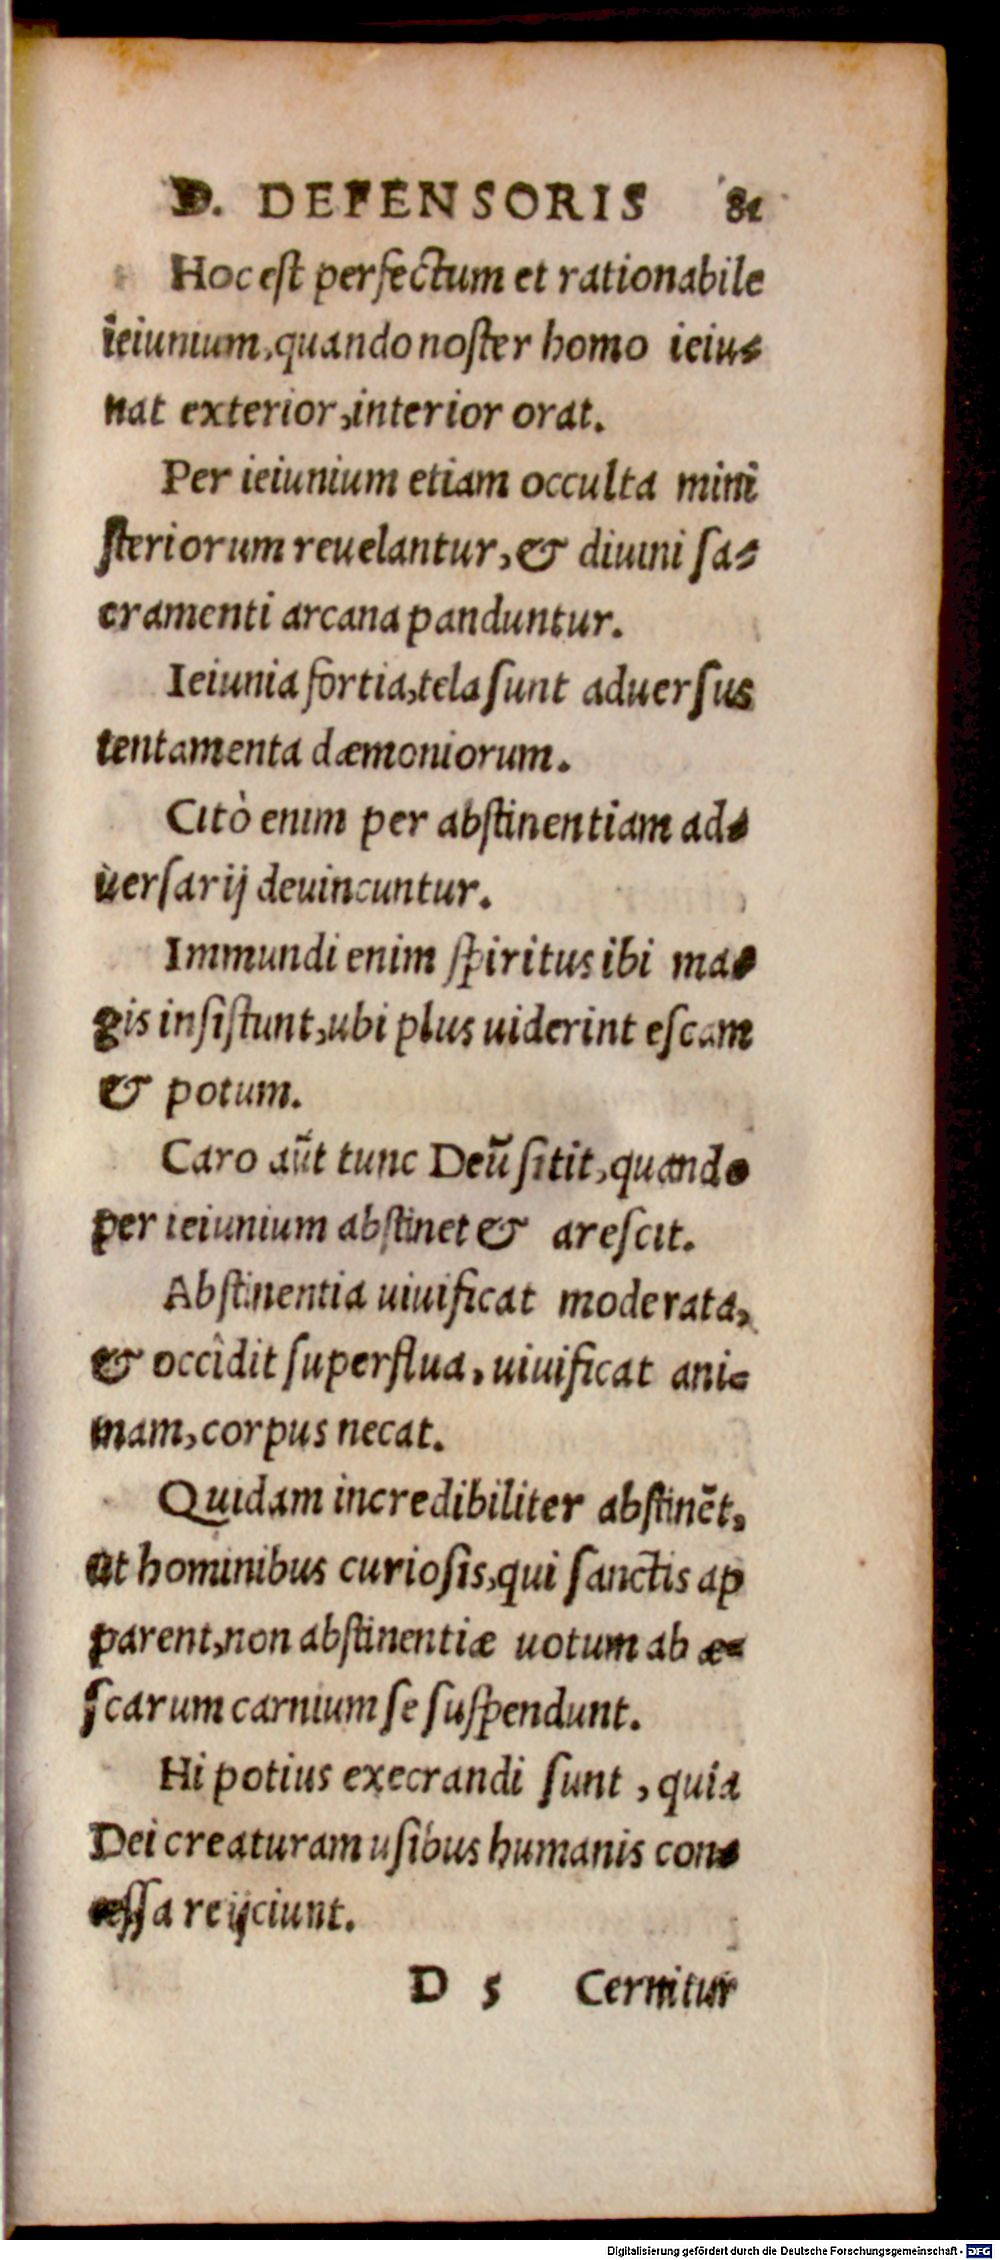 D. DEFENSORIS 81
Hoc est perfectum et rationabile
ieiunium, quando noster homo ieiu-
nat exterior, interior orat.
Per ieiunium etiam occulta mini
steriorum reuelantur, & diuini sa-
cramenti arcana panduntur.
Ieiunia fortia, tela sunt aduersus
tentamenta dæmoniorum.
Citò enim per abstinentiam ad-
uersarij deuincuntur.
Immundi enim spiritus ibi ma-
gis insistunt, ubi plus uiderint escam
& potum.
Caro aūt tunc Deū sitit, quando
per ieiunium abstinet & arescit.
Abstinentia uiuificat moderata,
& occidit superflua, uiuificat ani-
mam, corpus necat.
Quidam incredibiliter abstinēt,
ut hominibus curiosis, qui sanctis ap
parent, non abstinentiæ uotum ab æ-
scarum carnium se suspendunt.
Hi potius execrandi sunt, quia
Dei creaturam usibus humanis con-
cessa reijciunt.
D 5 Cernitur
Digitalisierung gefördert durch die Deutsche Forschungsgemeinschaft - DFG